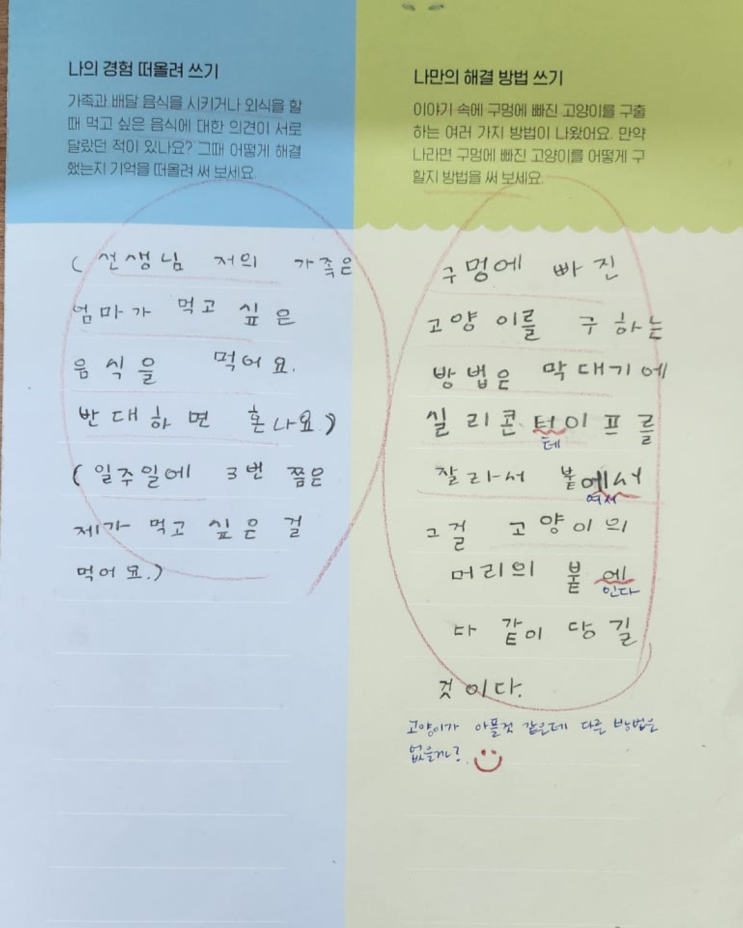 나의 경험 떠올려 쓰기
가족과 배달 음식을 시키거나 외식을 할
때 먹고 싶은 음식에 대한 의견이 서로
달랐던 적이 있나요? 그때 어떻게 해결
했는지 기억을 떠올려 써 보세요.
(선생님 저의 가족은
엄마가 먹고 싶은
음식을 먹어요.
반대하면 혼나요.)
(일주일에 3번 쯤은
제가 먹고 싶은 걸
먹어요.)
나만의 해결 방법 쓰기
이야기 속에 구멍에 빠진 고양이를 구출
하는 여러 가지 방법이 나왔어요. 만약
나라면 구멍에 빠진 고양이를 어떻게 구
할지 방법을 써 보세요.
구멍에 빠진
고양이를 구하는
방법은 막대기에
실리콘 터이프를
테
잘라서 붙에서
여서
그걸 고양이의
머리의 붙에
인다
다 같이 당길
것이다.
고양이가 아플것 같은데 다른 방법은
없을까?